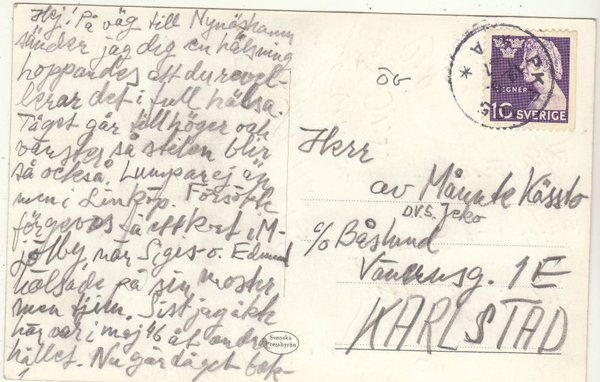 Hej! På väg till Nynäshamn
sänder jag dig en hälsning
hoppandes att du revel-
lerar det i full hälsa.
Tåget går åt höger och
så stilen blir
så också. Lumpar ej än
men i Linköp. Försökte
förgeves få ett kort i M-
jölby, när Siges o. Edmund
hälsade på sin moster
men Sist jag åkte
här var i maj 46 åt andra
hållet. Nu går tåget bak-
ÖG
PKXP
A
TEGNER
10 SVERIGE
Herr
av Månate Kässlo
D.V.S. Jcko
c/o Båslund
Vänersg. 1E
KARLSTAD
Svenska
Pressbyrån